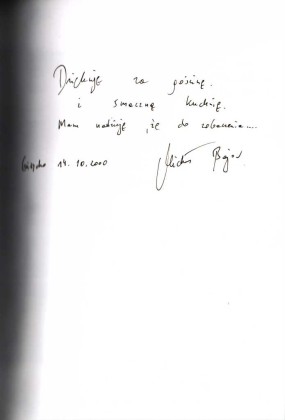 Dziękuję za gościnę.
i smaczną kuchnię.
Mam nadzieję, że do zobaczenia...
14.10.2000